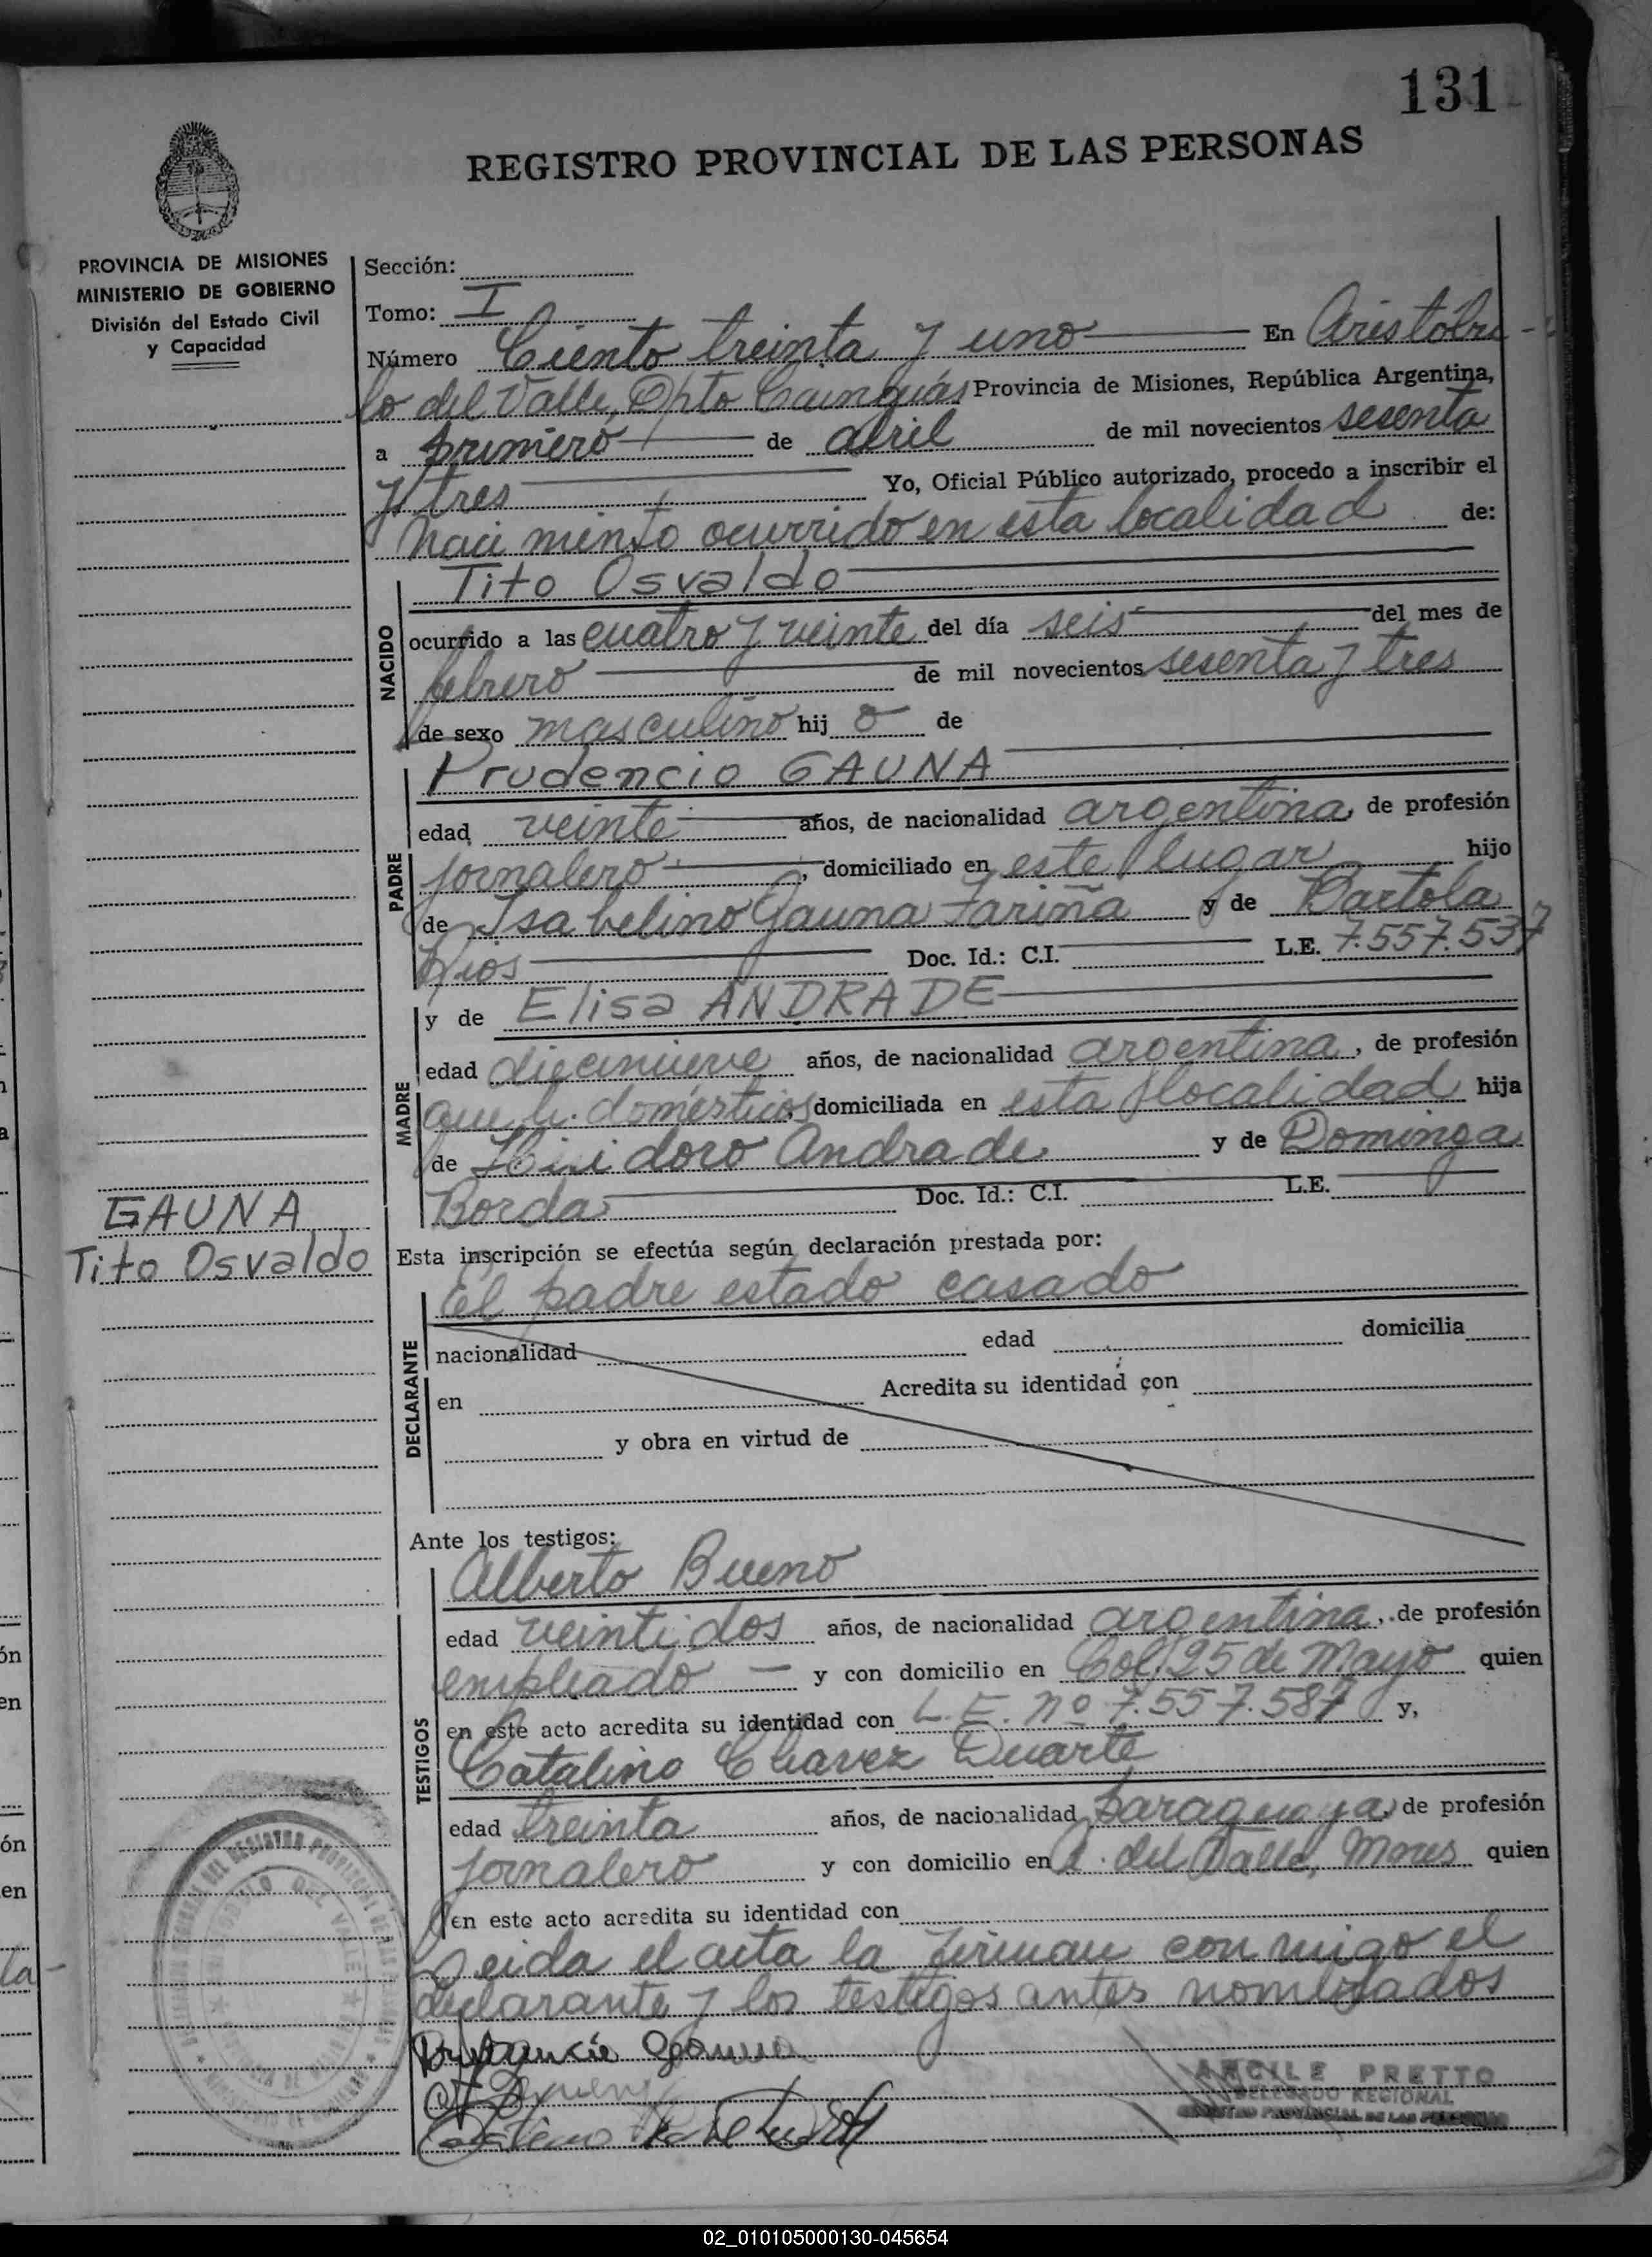 131
REGISTRO PROVINCIAL DE LAS PERSONAS
PROVINCIA DE MISIONES
MINISTERIO DE GOBIERNO
División del Estado Civil
y Capacidad
Sección:
Tomo: I
Número Ciento treinta y uno En Aristóbu-
lo del Valle, Dpto Cainguás Provincia de Misiones, República Argentina,
a primero de abril de mil novecientos sesenta
y tres Yo, Oficial Público autorizado, procedo a inscribir el
Naci miento ocurrido en esta localidad de:
Tito Osvaldo
NACIDO
ocurrido a las cuatro y veinte del día seis del mes de
febrero de mil novecientos sesenta y tres
de sexo masculino hij o de
Prudencio GAUNA
PADRE
edad veinte años, de nacionalidad argentina, de profesión
jornalero, domiciliado en este lugar hijo
de Isabelino Gauna Fariña y de Bartola
Rios Doc. Id.: C.I. L.E. 7.557.537
y de Elisa ANDRADE
MADRE
edad diecinueve años, de nacionalidad argentina, de profesión
que h. domésticos domiciliada en esta localidad hija
de Isidoro Andrade y de Dominga
Borda Doc. Id.: C.I. L.E.
GAUNA
Tito Osvaldo
Esta inscripción se efectúa según declaración prestada por:
El padre estado casado
DECLARANTE
nacionalidad edad domicilia
en Acredita su identidad con
y obra en virtud de
Ante los testigos:
Alberto Bueno
TESTIGOS
edad veintidos años, de nacionalidad argentina, de profesión
empleado — y con domicilio en Col. 25 de Mayo quien
en este acto acredita su identidad con L.E. nº 7.557.587 y,
Catalino Chavez Duarte
edad treinta años, de nacionalidad paraguaya, de profesión
jornalero y con domicilio en A. del Valle, Mnes quien
en este acto acredita su identidad con
Leida el acta la firman conmigo el
declarante y los testigos antes nombrados
Prudencio Gauna
ARCILE PRETTO
DELEGADO REGIONAL
REGISTRO PROVINCIAL DE LAS PERSONAS
02_010105000130-045654